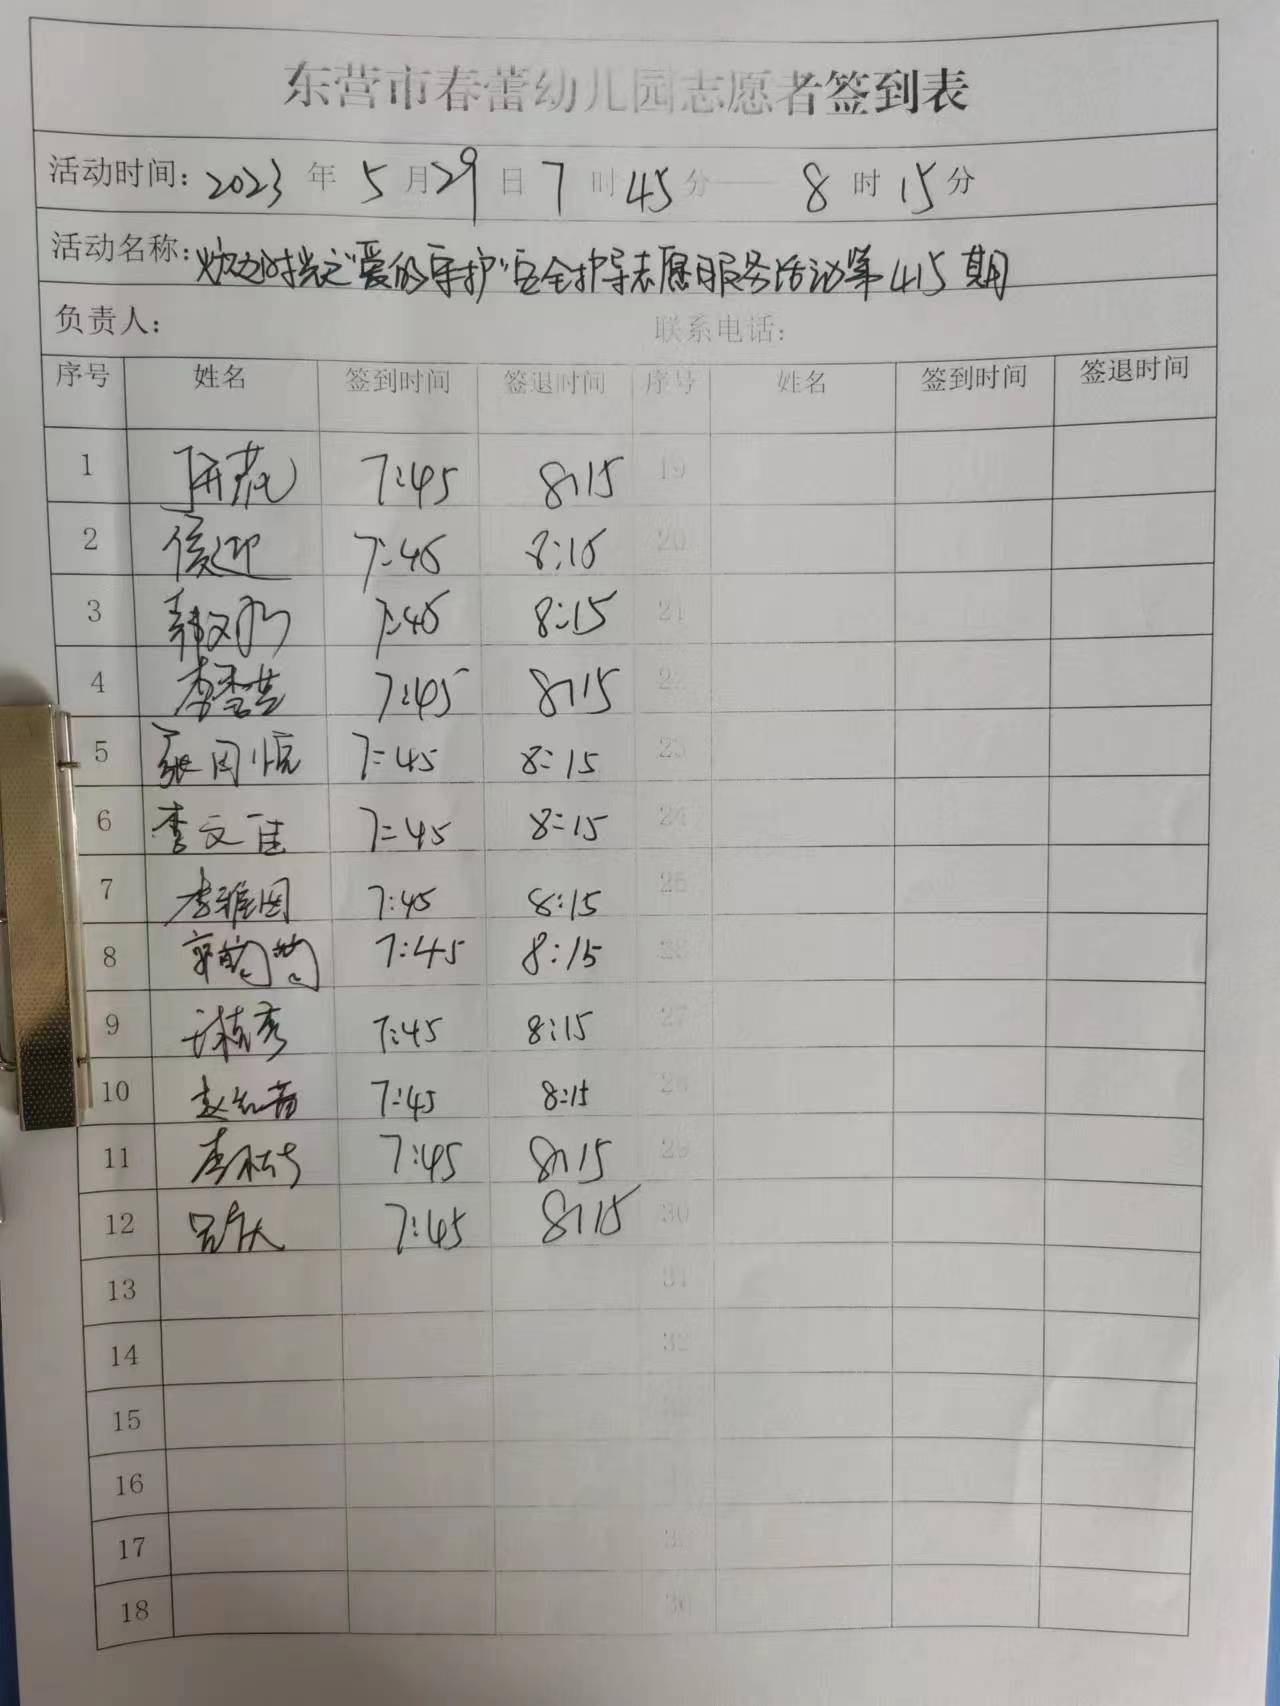 东营市春蕾幼儿园志愿者签到表
活动时间: 2023 年 5 月 29 日 7 时 45 分 — 8 时 15 分
活动名称: 时光之"爱的守护"安全护导志愿服务活动第415期
负责人: 联系电话:
序号 姓名 签到时间 签退时间 序号 姓名 签到时间 签退时间
1 7:45 8:15 19
2 侯迎 7:45 8:15 20
3 韩文 7:45 8:15 21
4 李 7:45 8:15 22
5 张同恒 7:45 8:15 23
6 李文佳 7:45 8:15 24
7 李雅囡 7:45 8:15 25
8 郭 7:45 8:15 26
9 7:45 8:15 27
10 赵 7:45 8:15 28
11 李 7:45 8:15 29
12 吕 7:45 8:15 30
13 31
14 32
15
16
17
18 36